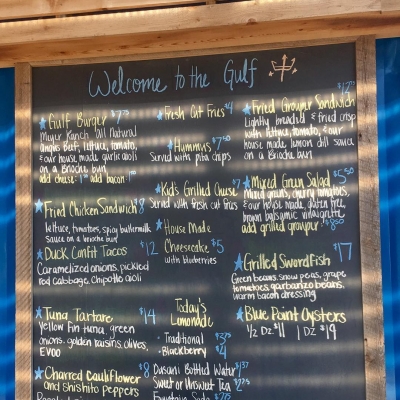 Welcome to the Gulf
Gulf Burger $7
Meyer Ranch all Natural
Angus Beef, lettuce, tomato,
& our house made garlic aioli
on a Brioche bun
add cheese bacon
Fried Chicken Sandwich $8
lettuce, tomatoes, spicy buttermilk
sauce on a brioche bun
Duck Confit Tacos $12
Caramelized onions, pickled
red cabbage, chipotle aioli
Tuna Tartare $14
Yellow Fin tuna, green
onions, golden raisins, olives,
EVOO
Charred Cauliflower $8
and shishito peppers
Fresh Cut Fries $4
Hummus $7.50
Served with pita chips
Kid's Grilled Cheese $7
Served with fresh cut fries
House Made
Cheesecake $5
with blueberries
Today's
Lemonade
- Traditional $3.75
- Blackberry $4
Dasani Bottled Water
Sweet or Unsweet Tea
Fountain Soda
Fried Grouper Sandwich
Lightly breaded & fried crisp
with lettuce, tomato, & our
house made lemon dill sauce
on a Brioche bun
Mixed Green Salad $5.50
Mixed greens, cherry tomatoes,
& our house made, gluten free,
brown balsamic vinaigrette
add grilled grouper
Grilled Swordfish $17
Green beans, snow peas, grape
tomatoes, garbanzo beans,
warm bacon dressing
Blue Point Oysters
1/2 DZ $11 1 DZ $19